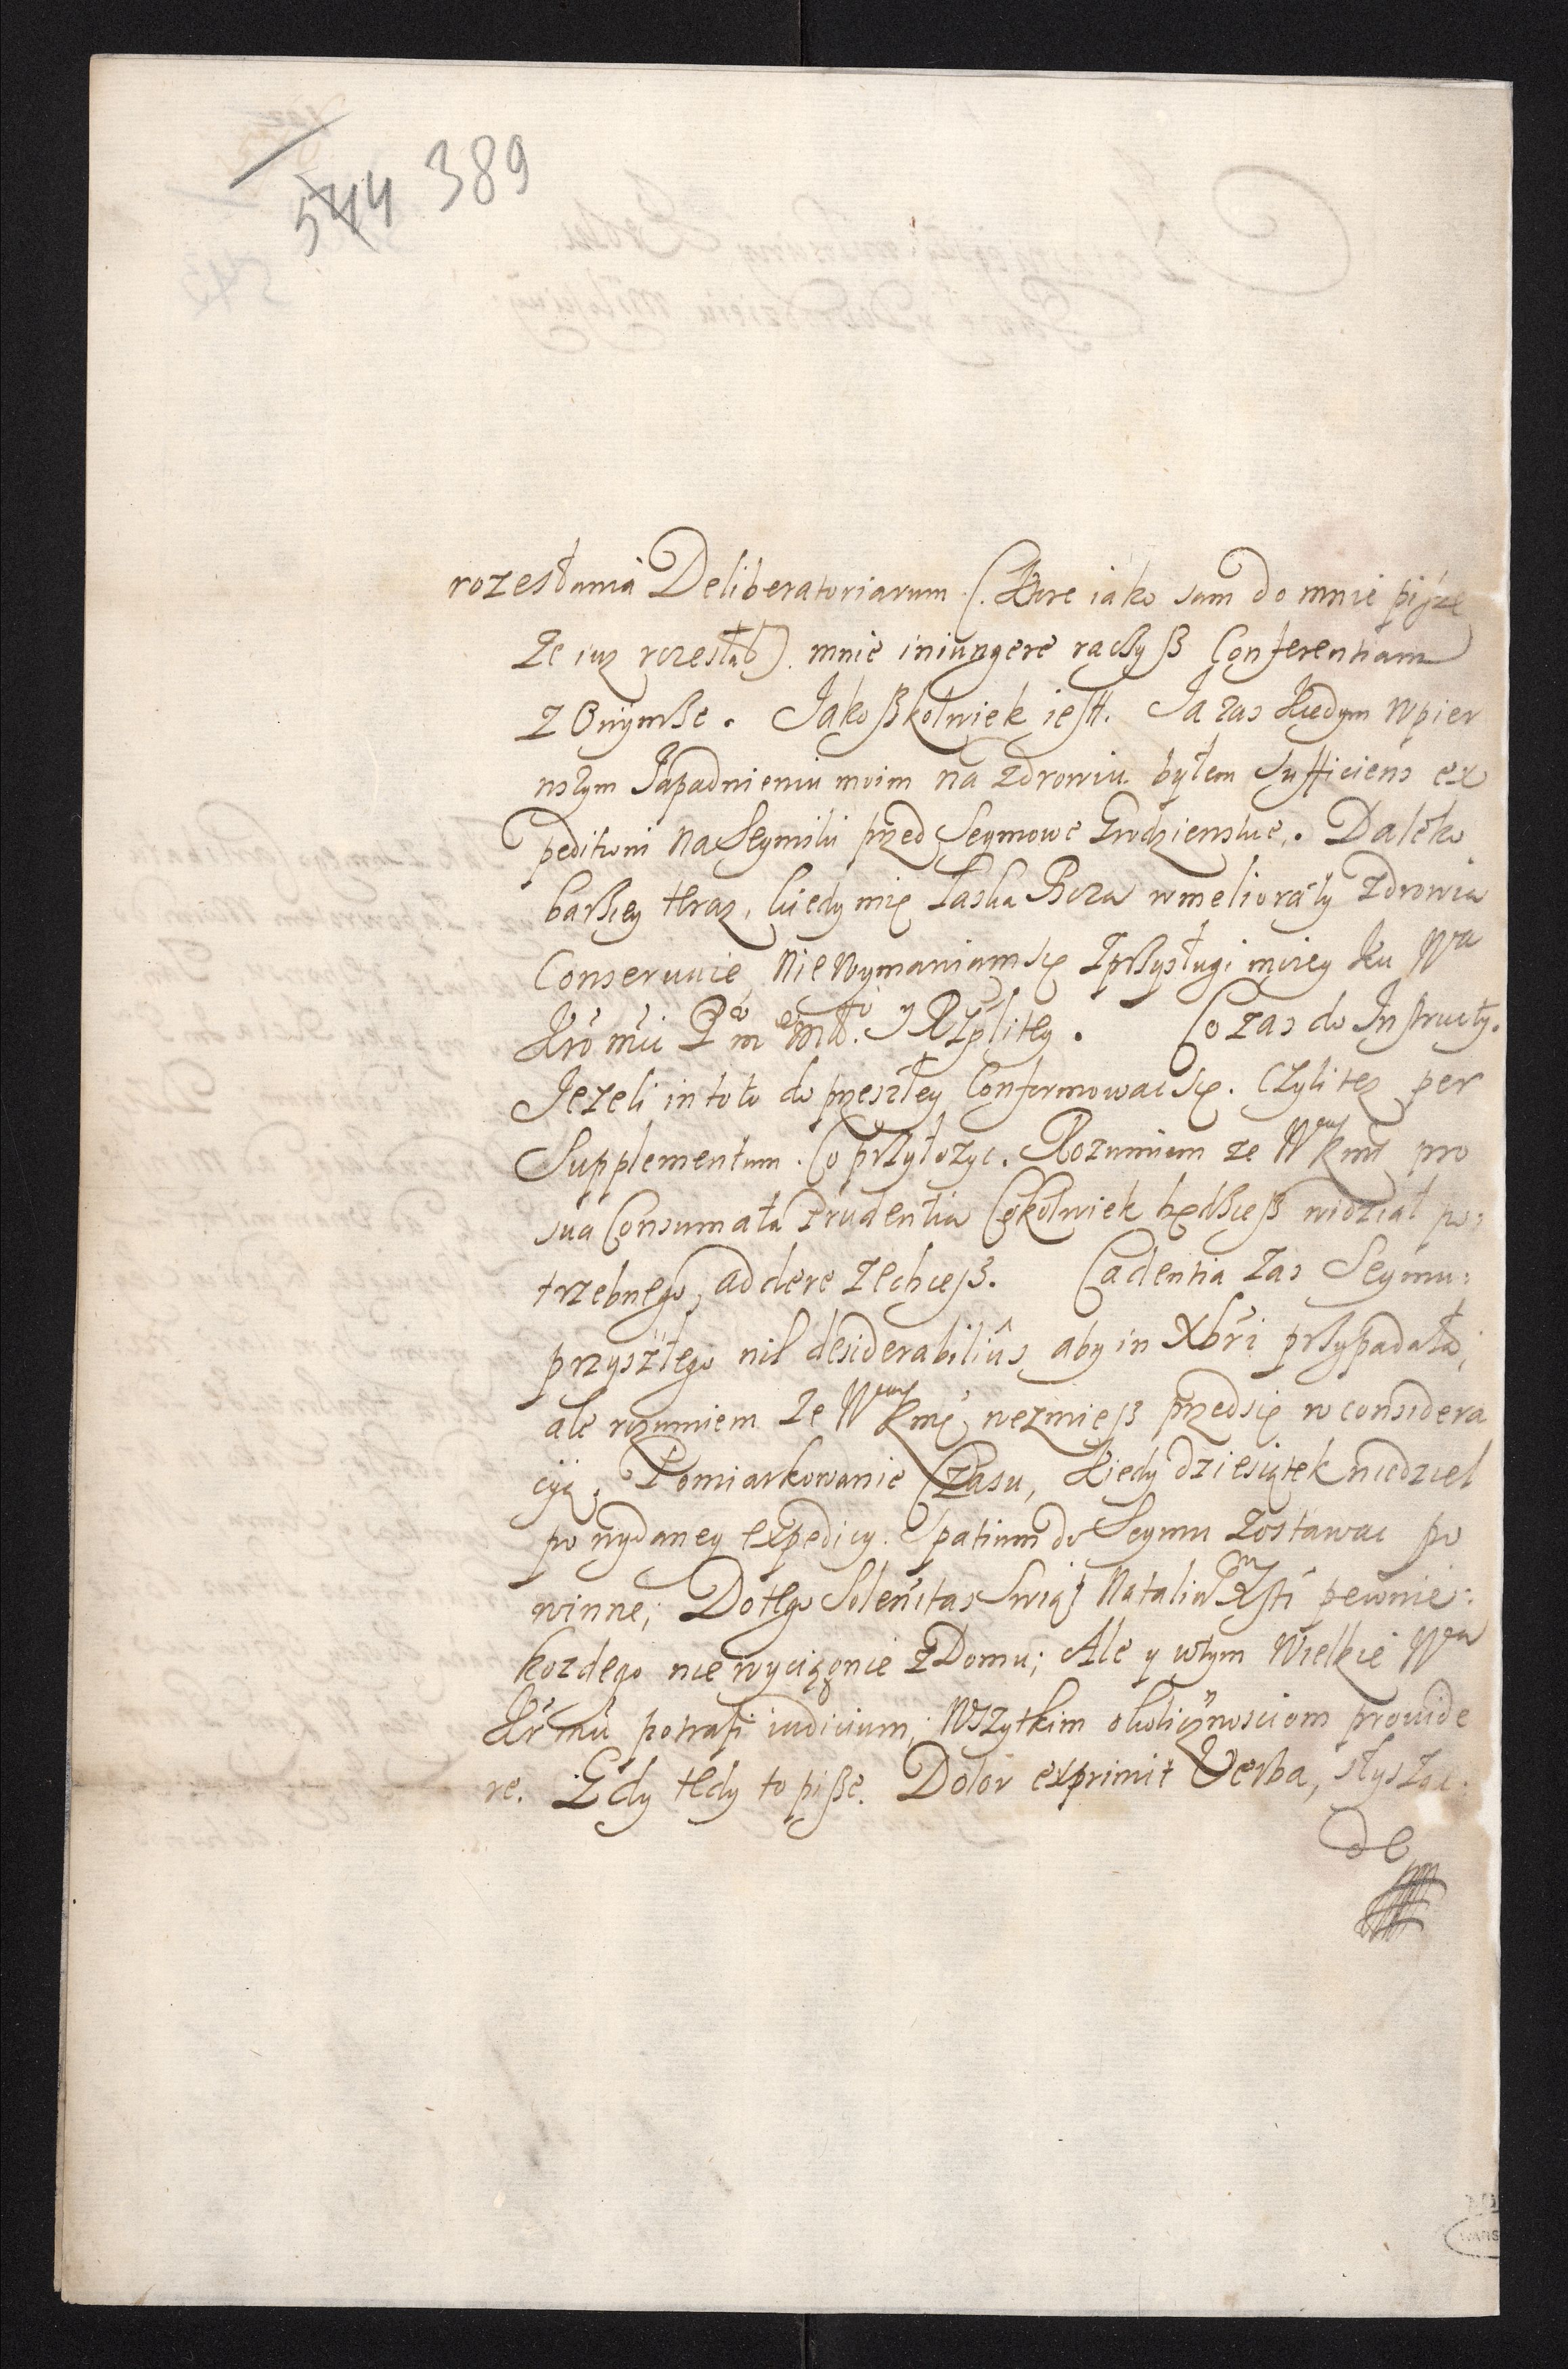 544 389
rozesłania Deliberatoriarum (. Ktore iako sam do mnie pisze
Ze iuz rozesłał). mnie iniungere raczysz Conferentiam
z Onymze. Jakoszkolwiek iest. Ja zas kiedym w pier
wszym Zapadnieniu moim na zdrowiu byłem sufficiens ex
peditioni na Seymiki przed Seymowe Grodzienskie. Daleko
barziey teraz, kiedy mię Łaska Boza w melioraty zdrowia
Conseruuie, nie wymawiam się z przysługi moiey ku Wa
Kro mći P m młł. y Rzplitey. Co zas do Instructy.
Jezeli in toto do przeszłey Conformowac się. Czyli tez per
Supplementum. Co przyłozyc. Rozumiem ze W Kmć pro
sua Consumata Prudentia Cokolwiek będziesz widział po:
trzebnego, addere zechcesz. Cadentia zas Seymu:
przyszłego nil desiderabiliûs, aby in Xbri przypadała;
ale rozumiem Ze W Kmć, wezmiesz przedsię w considera
cyą, Pomiarkowanie Czasu, kiedy dziesiątek niedziel
po wydaney expedicy. Spatium do Seymu zostawac po
winne; Do tego Solenitas Swiąt Natalium Xsti pewnie:
kozdego nie wyciągnie z Domu; Ale y w tym Wielkie Wa
Kr mći potrafi iudicium, Wszytkim okolicznosciom prouide
re. Gdy tedy to pisze. Dolor exprimit Verba, słysząc.
de
WARS